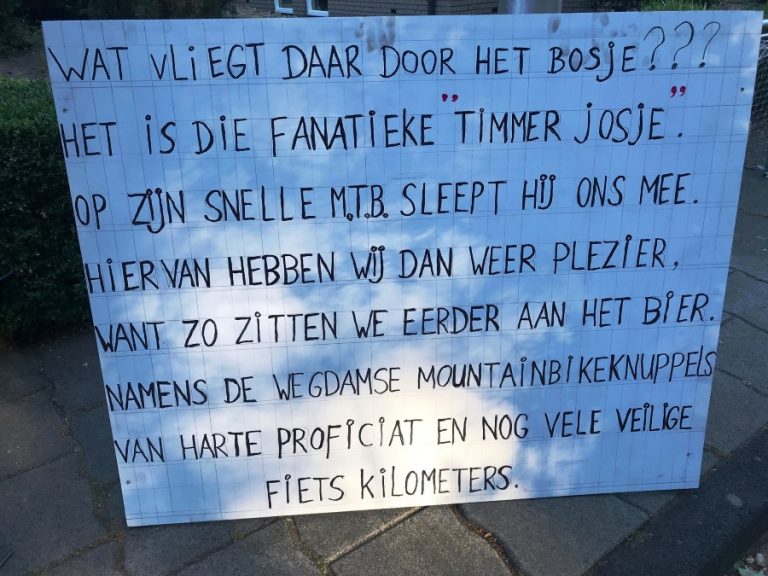 WAT VLIEGT DAAR DOOR HET BOSJE???
HET IS DIE FANATIEKE "TIMMER JOSJE".
OP ZIJN SNELLE M.T.B. SLEEPT HIJ ONS MEE.
HIERVAN HEBBEN WIJ DAN WEER PLEZIER,
WANT ZO ZITTEN WE EERDER AAN HET BIER.
NAMENS DE WEGDAMSE MOUNTAINBIKEKNUPPELS
VAN HARTE PROFICIAT EN NOG VELE VEILIGE
FIETS KILOMETERS.